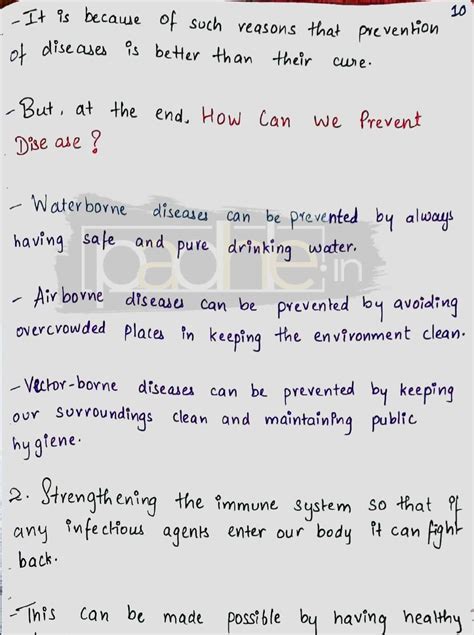 10
- It is because of such reasons that prevention
of diseases is better than their cure.
- But, at the end, How Can we Prevent
Disease?
- Waterborne diseases can be prevented by always
having safe and pure drinking water.
padhle.in
- Airborne diseases can be prevented by avoiding
overcrowded places in keeping the environment clean.
- Vector-borne diseases can be prevented by keeping
our surroundings clean and maintaining public
hygiene.
2. Strengthening the immune system so that if
any infectious agents enter our body it can fight
back.
- This can be made possible by having healthy